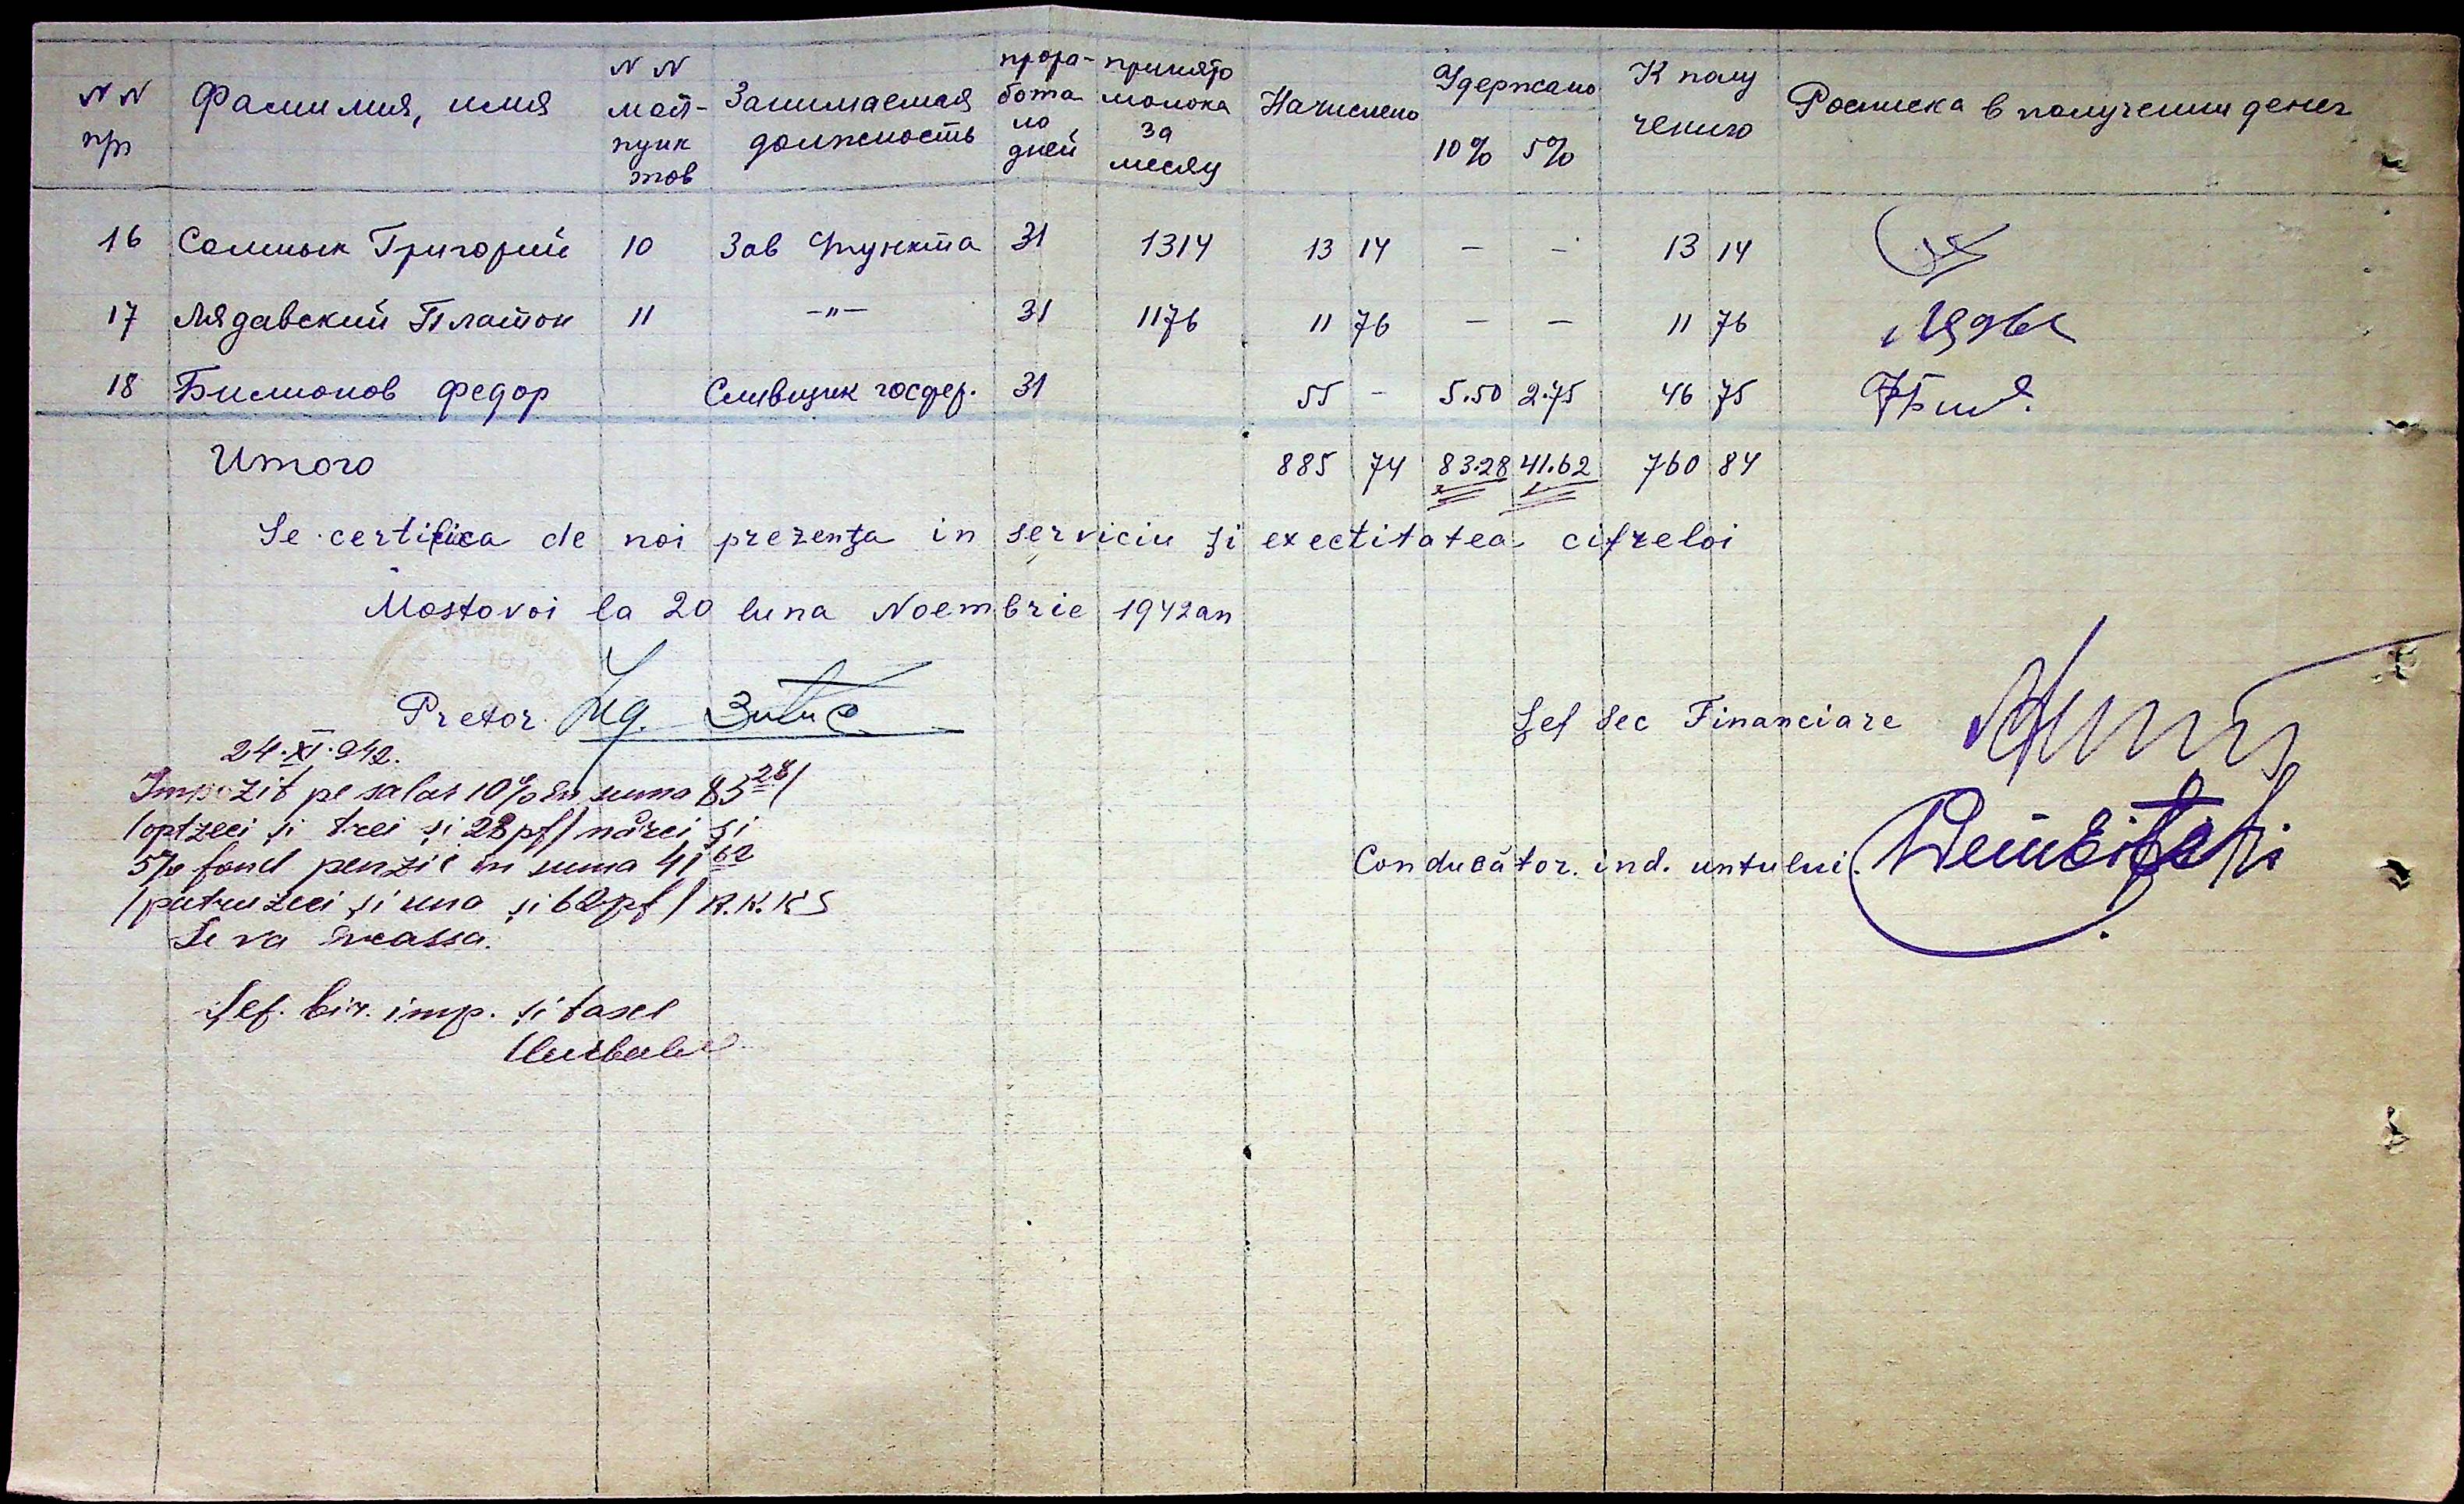 NN пп Фамилия, имя NN мол-пунктов Занимаемая должность прора-ботано дней принято молока за месяц Начислено Удержано 10% 5% К получению Росписка в получении денег
16 Солнык Григорий 10 Зав пункта 31 1314 13 14 - - 13 14
17 Лядавский Платон 11 -"- 31 1176 11 76 - - 11 76
18 Билионов Федор Сливщик госфер. 31 55 - 5.50 2.75 46 75
Итого 885 74 83.28 41.62 760 84
Se certifica de noi prezenţa in serviciu şi exectitatea cifreloi
Mostovoi la 20 luna Noembrie 1942 an
Pretor Ing.
Şef Sec Financiare
24.XI.942.
Impozit pe salar 10% în suma 83 28/
/optzeci şi trei şi 28 pf/ mărci şi
5% fond penzie în suma 41 62
/patruzeci şi una şi 62 pf/ R.K.K.S
Se va încassa.
Conducător. ind. untului.
Şef. bir. imp. şi taxel